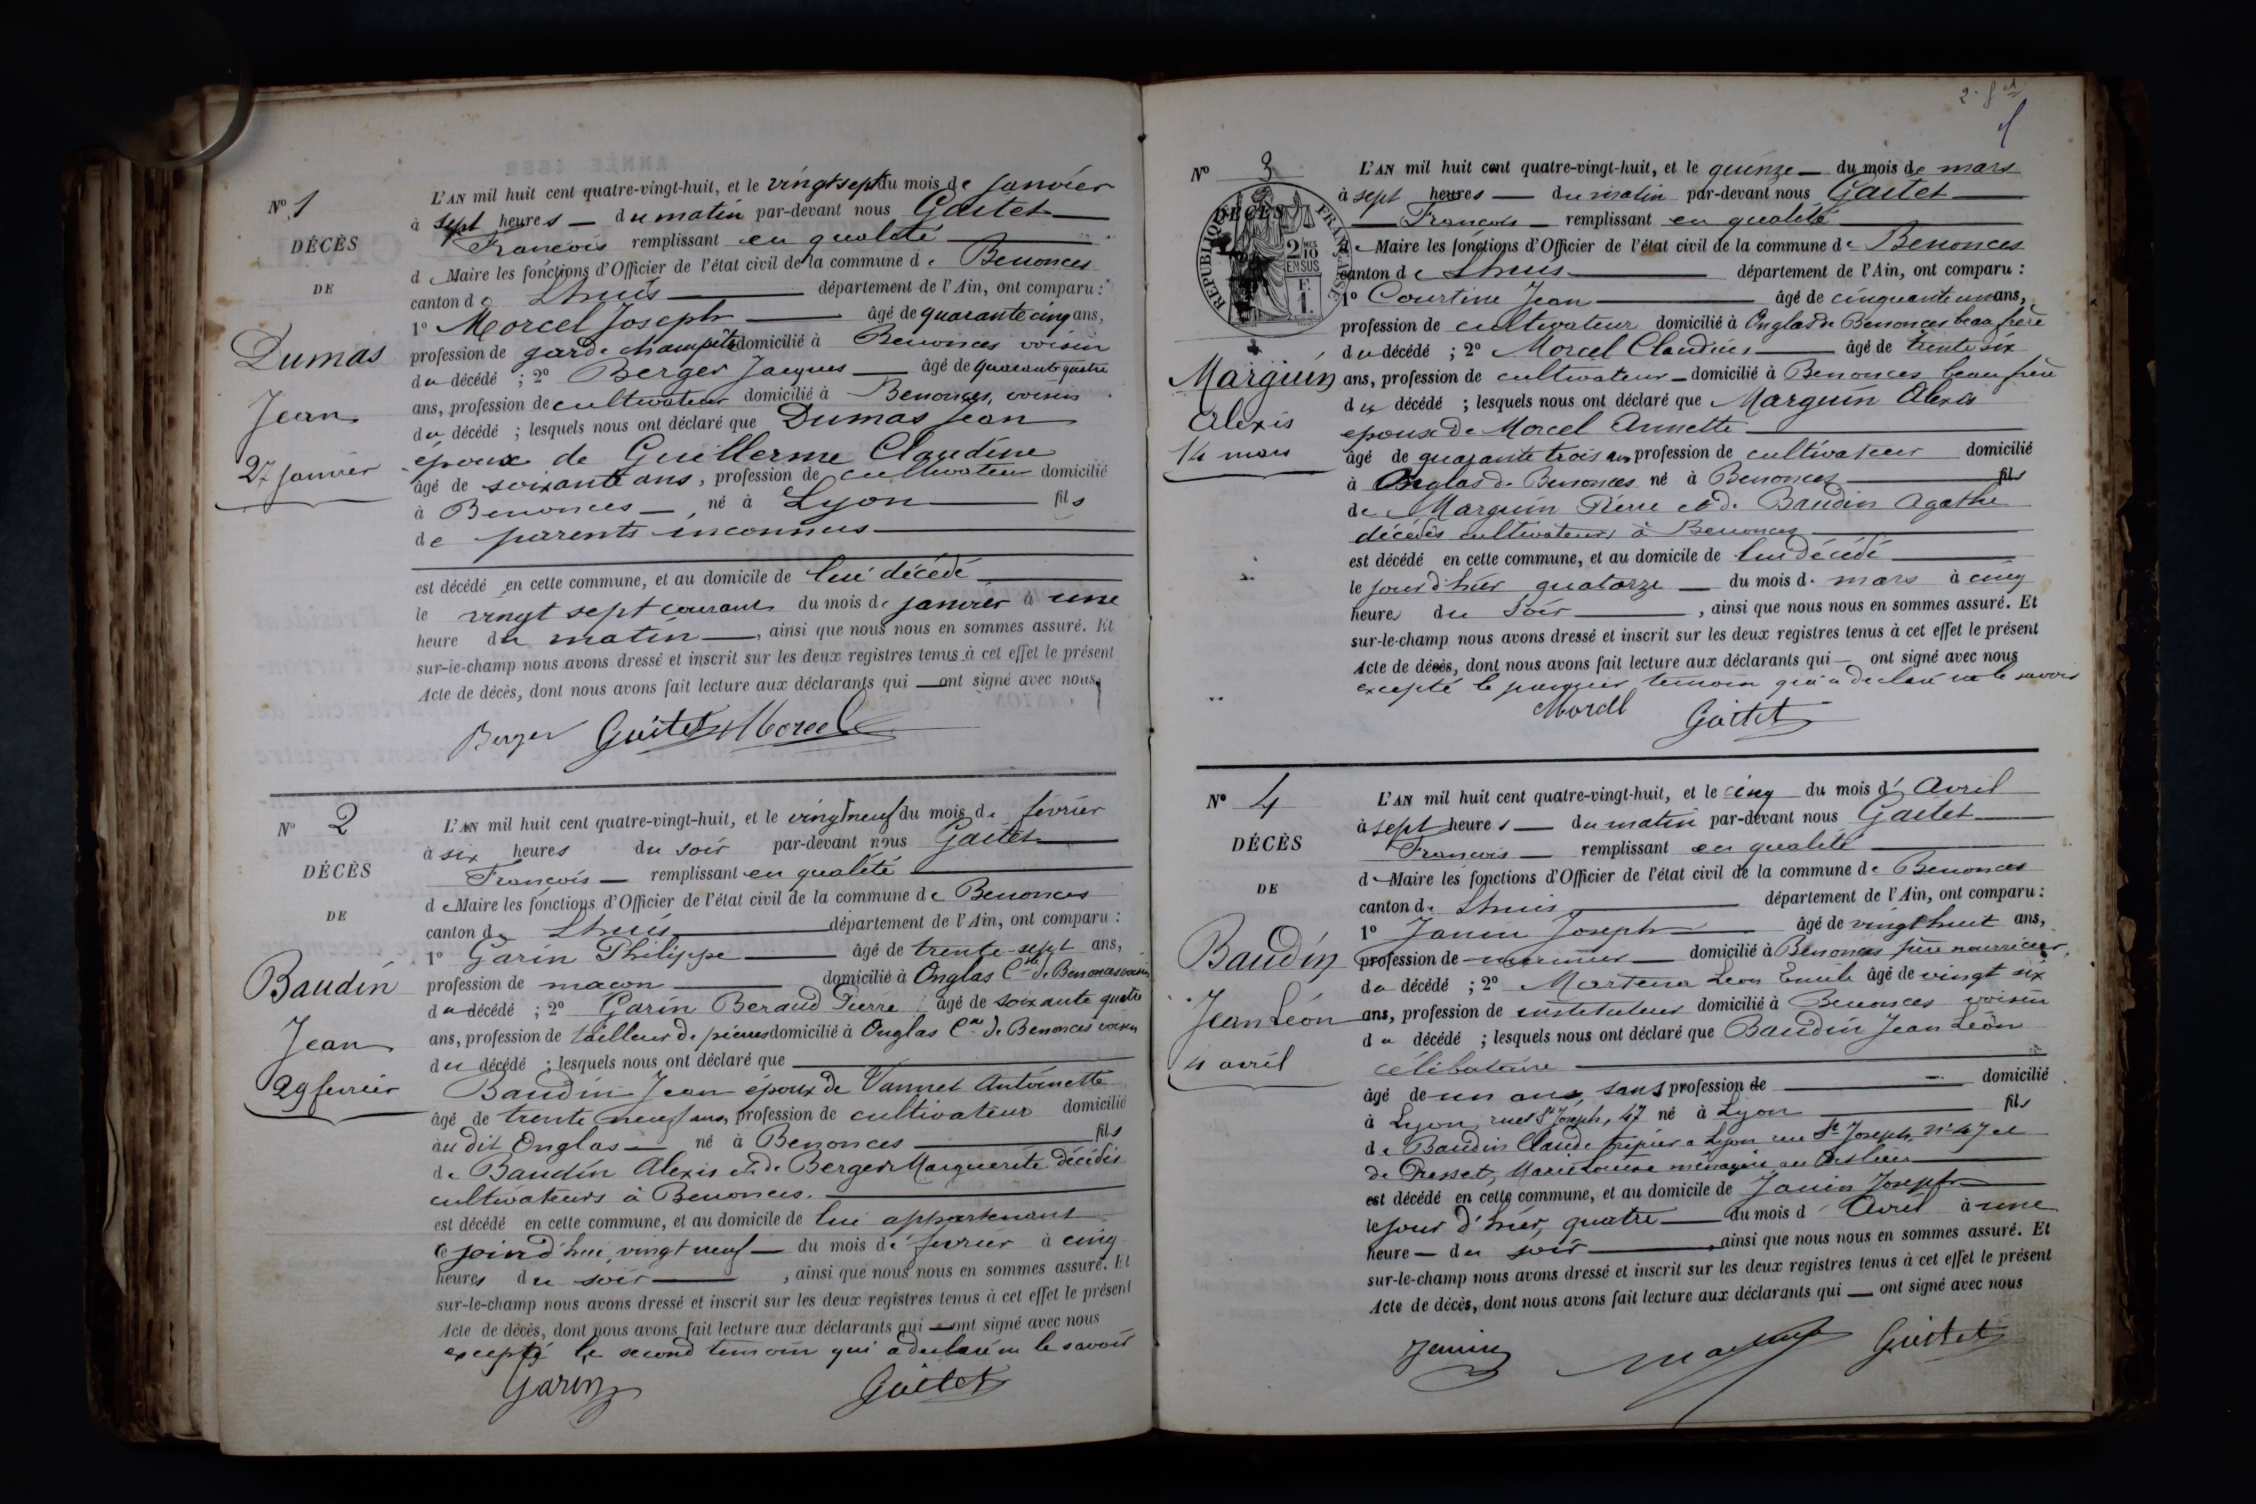 N° 1
DÉCÈS
DE
Dumas
Jean
27 janvier
L'AN mil huit cent quatre-vingt-huit, et le vingt sept du mois de janvier
à sept heures — du matin par-devant nous Gaitet
François remplissant en qualité
de Maire les fonctions d'Officier de l'état civil de la commune de Benonces
canton de Lhuis département de l'Ain, ont comparu :
1° Morcel Joseph âgé de quarante cinq ans,
profession de garde champêtre domicilié à Benonces voisin
du décédé ; 2° Berger Jacques âgé de quarante quatre
ans, profession de cultivateur domicilié à Benonces, voisin
du décédé ; lesquels nous ont déclaré que Dumas Jean
époux de Guillerme Claudine
âgé de soixante ans, profession de cultivateur domicilié
à Benonces —, né à Lyon fils
de parents inconnus
est décédé en cette commune, et au domicile de lui décédé
le vingt sept courant du mois de janvier à une
heure du matin —, ainsi que nous nous en sommes assuré. Et
sur-le-champ nous avons dressé et inscrit sur les deux registres tenus à cet effet le présent
Acte de décès, dont nous avons fait lecture aux déclarants qui — ont signé avec nous
Berger Gaitet Morcel
N° 2
DÉCÈS
DE
Baudin
Jean
29 fevrier
L'AN mil huit cent quatre-vingt-huit, et le vingt neuf du mois de fevrier
à six heures du soir par-devant nous Gaitet
François — remplissant en qualité
de Maire les fonctions d'Officier de l'état civil de la commune de Benonces
canton de Lhuis département de l'Ain, ont comparu :
1° Garin Philippe âgé de trente-sept ans,
profession de maçon domicilié à Onglas Cne de Benonces voisin
du décédé ; 2° Garin Beraud Pierre âgé de soixante quatre
ans, profession de tailleur de pierres domicilié à Onglas Cne de Benonces voisin
du décédé ; lesquels nous ont déclaré que
Baudin Jean époux de Vannet Antoinette
âgé de trente neuf ans, profession de cultivateur domicilié
au dit Onglas — né à Benonces fils
de Baudin Alexis et de Berger Marguerite décédés
cultivateurs à Benonces.
est décédé en cette commune, et au domicile de lui appartenant
le jourd'hui, vingt neuf — du mois de fevrier à cinq
heures du soir —, ainsi que nous nous en sommes assuré. Et
sur-le-champ nous avons dressé et inscrit sur les deux registres tenus à cet effet le présent
Acte de décès, dont nous avons fait lecture aux déclarants qui — ont signé avec nous
excepté le second temoin qui a declaré ne le savoir
Garin Gaitet
N° 3
DÉCÈS
RÉPUBLIQUE FRANÇAISE
2/10 EN SUS
F. 1.
Marguin
Alexis
14 mars
L'AN mil huit cent quatre-vingt-huit, et le quinze — du mois de mars
à sept heures — du matin par-devant nous Gaitet
François — remplissant en qualité
de Maire les fonctions d'Officier de l'état civil de la commune de Benonces
canton de Lhuis département de l'Ain, ont comparu :
1° Courtine Jean âgé de cinquante un ans,
profession de cultivateur domicilié à Onglas de Benonces beau frère
du décédé ; 2° Morcel Claudius âgé de trente six
ans, profession de cultivateur — domicilié à Benonces beau frère
du décédé ; lesquels nous ont déclaré que Marguin Alexis
epoux de Morcel Annette
âgé de quarante trois ans profession de cultivateur domicilié
à Onglas de Benonces né à Benonces fils
de Marguin Pierre et de Baudin Agathe
décédés cultivateurs à Benonces
est décédé en cette commune, et au domicile de lui décédé
le jour d'hier quatorze — du mois de mars à cinq
heures du soir —, ainsi que nous nous en sommes assuré. Et
sur-le-champ nous avons dressé et inscrit sur les deux registres tenus à cet effet le présent
Acte de décès, dont nous avons fait lecture aux déclarants qui — ont signé avec nous
excepté le premier temoin qui a declaré ne le savoir
Morcel Gaitet
N° 4
DÉCÈS
DE
Baudin
Jean Léon
4 avril
L'AN mil huit cent quatre-vingt-huit, et le cinq du mois d'Avril
à sept heures — du matin par-devant nous Gaitet
François — remplissant en qualité
de Maire les fonctions d'Officier de l'état civil de la commune de Benonces
canton de Lhuis département de l'Ain, ont comparu :
1° Janin Joseph âgé de vingt huit ans,
profession de domicilié à Benonces père nourricier
du décédé ; 2° Leon Emile âgé de vingt six
ans, profession de instituteur domicilié à Benonces voisin
du décédé ; lesquels nous ont déclaré que Baudin Jean Léon
célibataire
âgé de un ans, sans profession de domicilié
à Lyon, rue St Joseph, 47 né à Lyon fils
de Baudin Claude à Lyon rue St Joseph, N° 47 et
de Presset, Marie Louise ménagère au
est décédé en cette commune, et au domicile de Janin Joseph
le jour d'hier, quatre — du mois d'Avril à une
heure — du soir —, ainsi que nous nous en sommes assuré. Et
sur-le-champ nous avons dressé et inscrit sur les deux registres tenus à cet effet le présent
Acte de décès, dont nous avons fait lecture aux déclarants qui — ont signé avec nous
Janin Gaitet